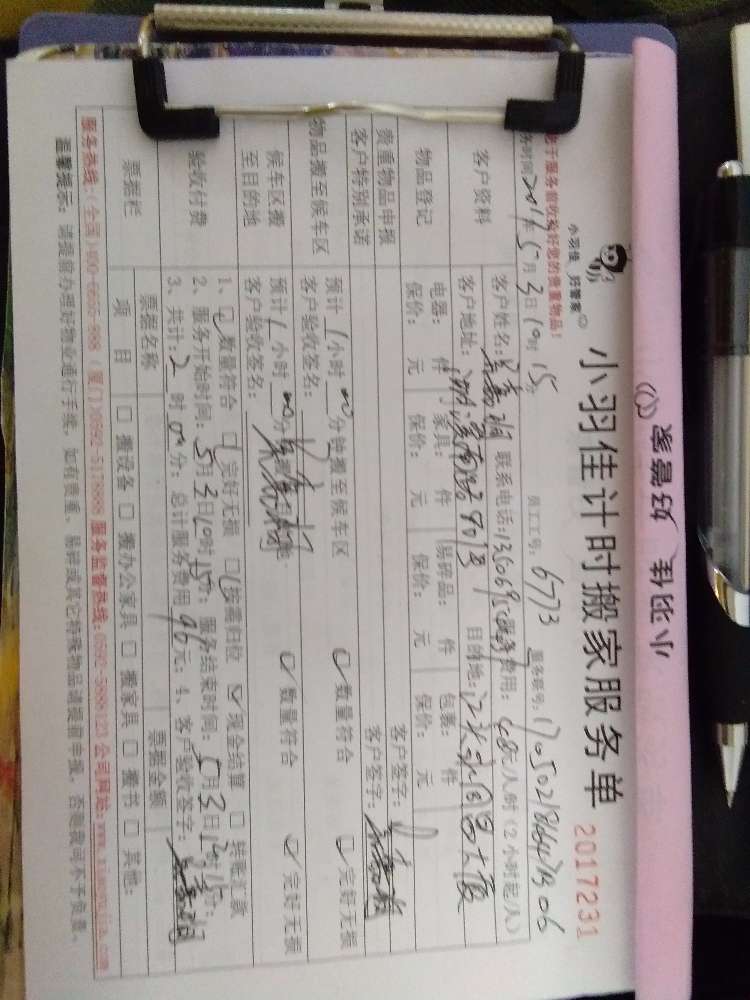 小羽佳 好管家
小羽佳计时搬家服务单
2017231
员工工号: 6773 服务账号:
客户资料
客户姓名: 联系电话: 服务费用: 48元/人/时(2小时起/人)
客户地址: 目的地:
物品登记
电器: 件 家具: 件 易碎品: 件 包裹: 件
保价: 元 保价: 元 保价: 元 保价: 元
贵重物品申报
客户签字:
客户特别承诺
客户签字:
物品搬至候车区
预计 1小时 分钟搬至候车区 数量符合 完好无损
客户验收签名:
候车区搬至目的地
预计 1小时 数量符合 完好无损
客户验收签名:
验收付费
1、数量符合 完好无损 按需归位 现金结算 转账汇款
2、服务开始时间: 5月3日10时15分; 服务结束时间: 5月3日12时15分;
3、共计: 2时00分; 总计服务费用 96元; 4、客户验收签字:
票据栏
票据名称 票据金额
项目 搬设备 搬办公家具 搬家具 搬书 其他:
服务热线:(全国)400-6665-888 (厦门)0592-5178888 服务监督热线:0592-5888123 公司网站: www.xiaoyujia.com
温馨提示: 请提前办理好物业通行手续, 如有贵重、易碎或其它特殊物品请提前申报, 否则我司不予负责。